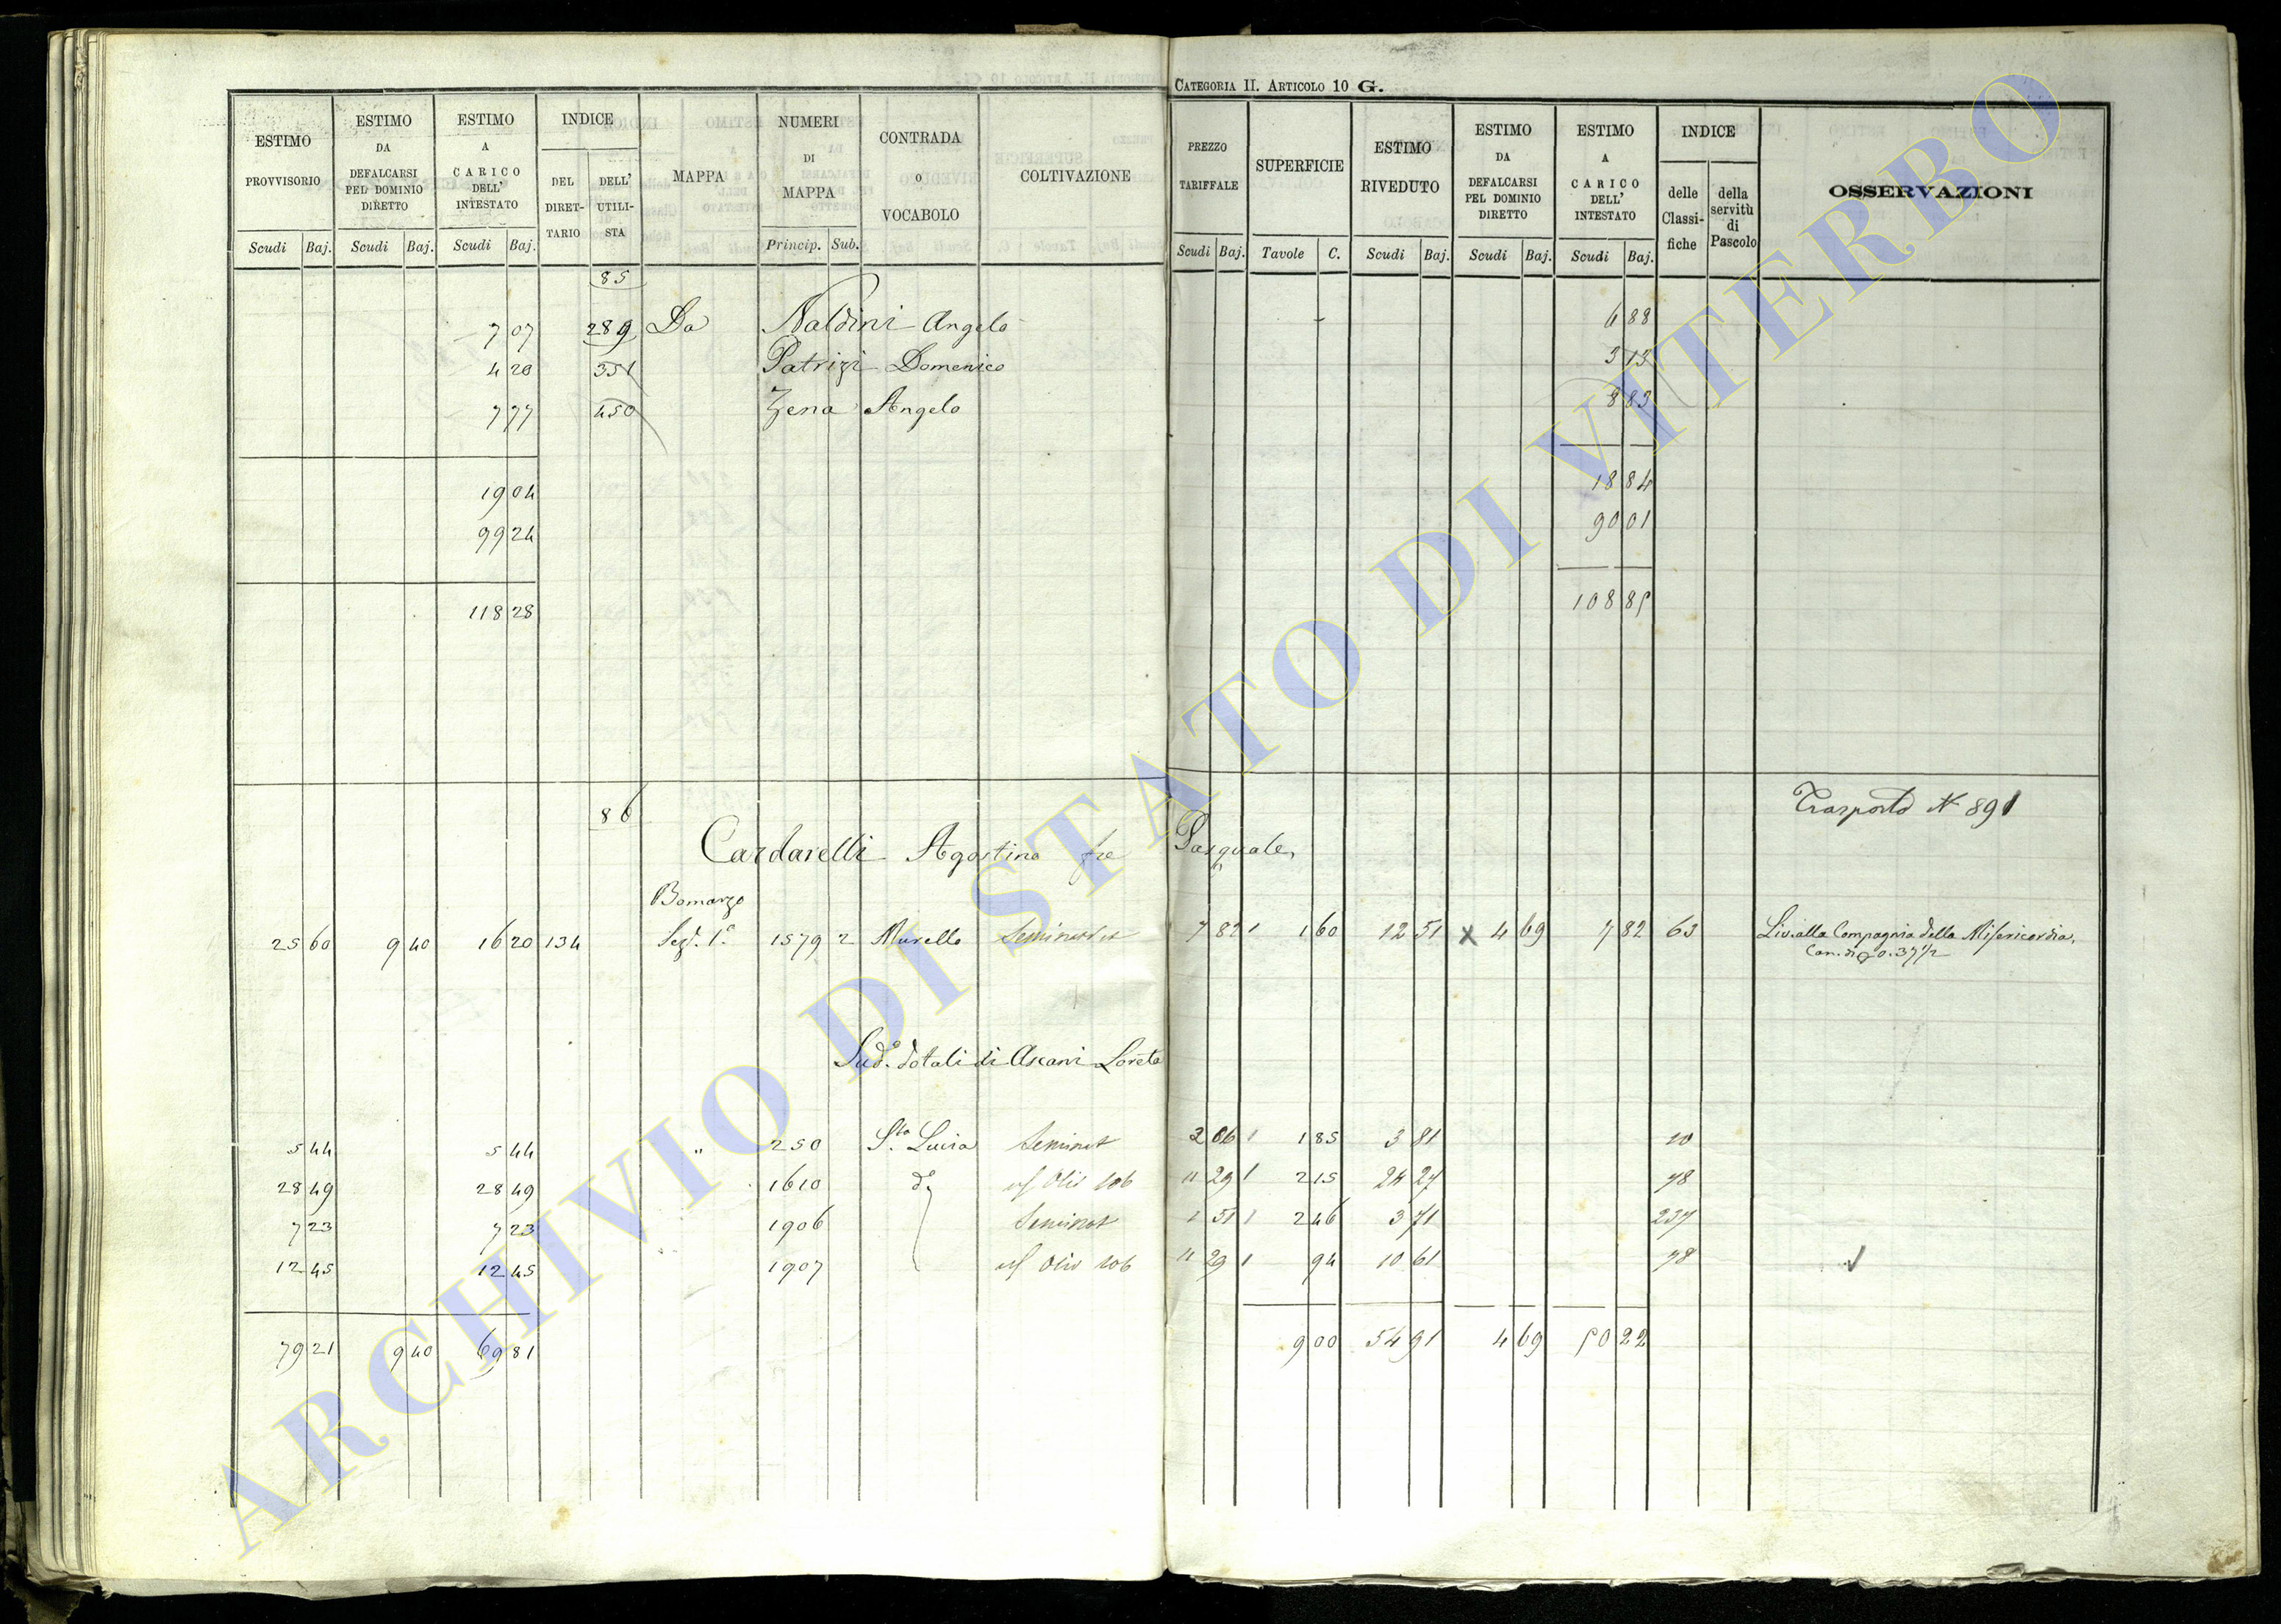 CATEGORIA II. ARTICOLO 10 G.
ESTIMO PROVVISORIO Scudi Baj.
ESTIMO DA DEFALCARSI PEL DOMINIO DIRETTO Scudi Baj.
ESTIMO A CARICO DELL' INTESTATO Scudi Baj.
INDICE DEL DIRET-TARIO DELL' UTILI-STA
MAPPA
NUMERI DI MAPPA Princip. Sub.
CONTRADA O VOCABOLO
COLTIVAZIONE
PREZZO TARIFFALE Scudi Baj.
SUPERFICIE Tavole C.
ESTIMO RIVEDUTO Scudi Baj.
ESTIMO DA DEFALCARSI PEL DOMINIO DIRETTO Scudi Baj.
ESTIMO A CARICO DELL' INTESTATO Scudi Baj.
INDICE delle Classi-fiche della servitù di Pascolo
OSSERVAZIONI
85
7 07 289 Da Naldini Angelo 6 88
4 20 351 Patrizi Domenico 3 13
7 77 450 Zena Angelo 8 83
19 04 18 84
99 24 90 01
118 28 108 85
86 Trasporto N 891
Cardarelli Agostino fu Pasquale
Bomarzo
25 60 9 40 16 20 134 Sez. 1ª 1579 2 Murello Seminat 7 82 1 1 60 12 51 x 4 69 7 82 63 Liv. alla Compagnia della Misericordia,
Can. di 0.37 1/2
Sud.º dotali di Ascani Loreta
5 44 5 44 " 250 S.ta Lucia Seminat 2 06 1 1 85 3 81 20
28 49 28 49 1610 dº Olio 11 29 1 2 15 24 27 78
7 23 7 23 1906 Seminat 1 51 1 2 46 3 71 237
12 45 12 45 1907 Olio 11 29 1 94 10 61 78
79 21 9 40 69 81 9 00 54 91 4 69 50 22
ARCHIVIO DI STATO DI VITERBO